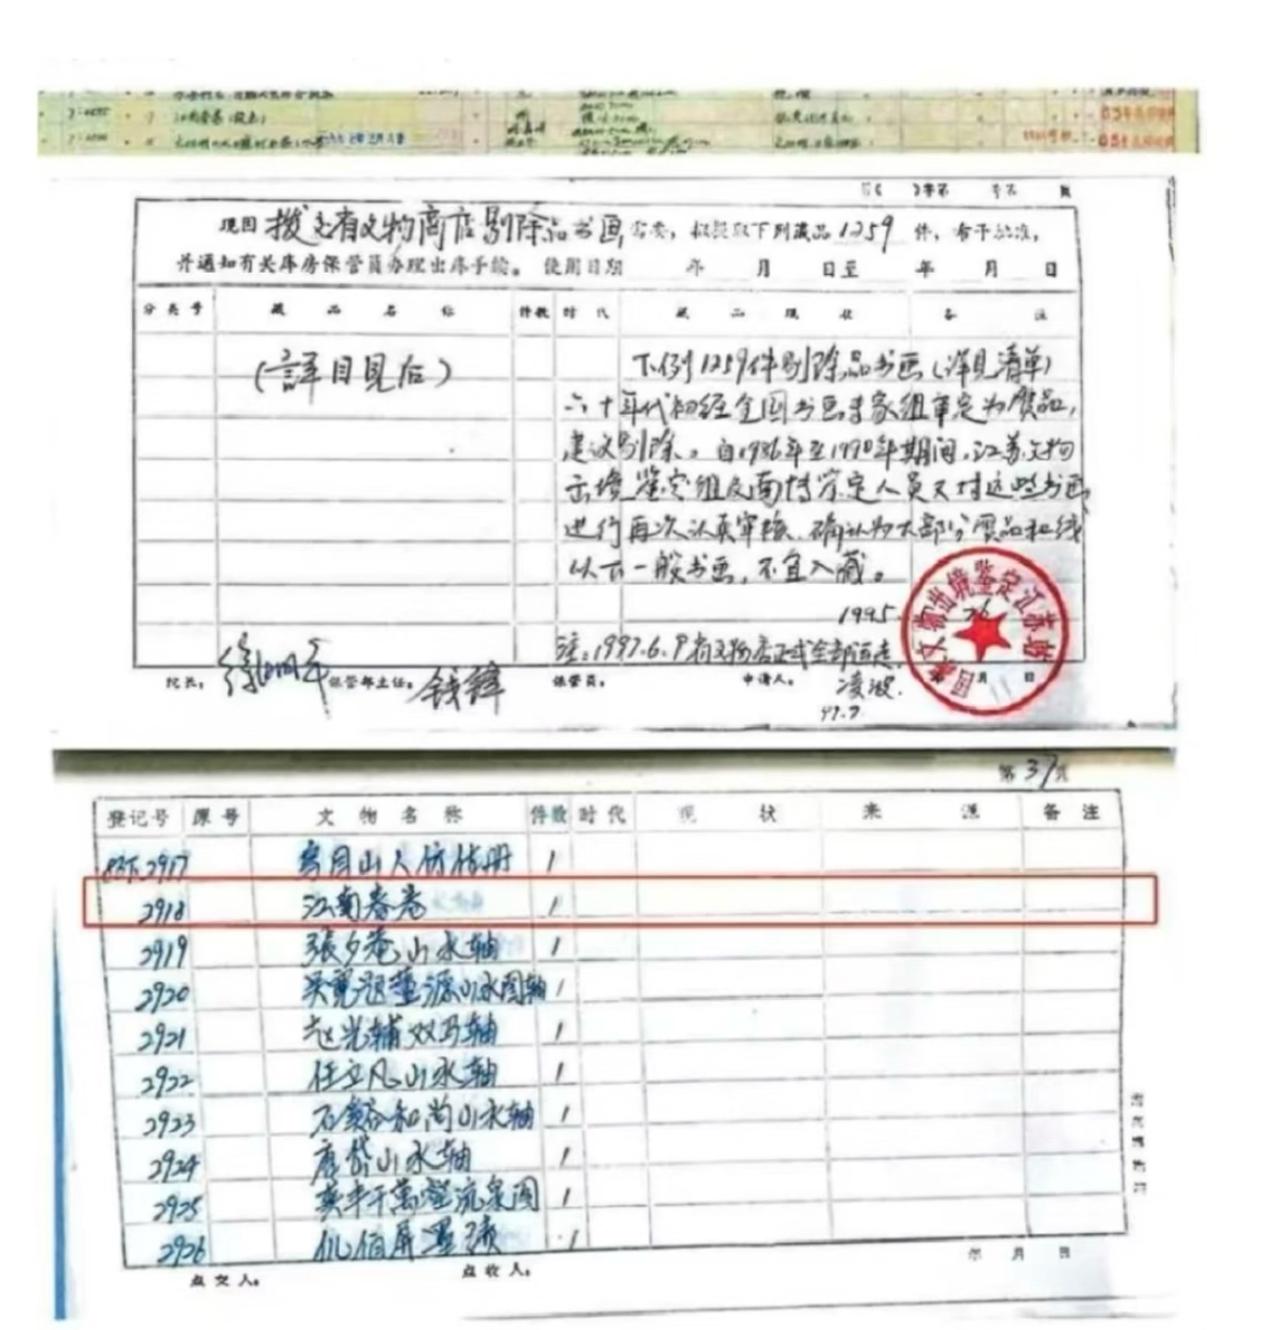 现因 拨交省文物商店剔除品书画 需要，拟提取下列藏品 1259 件，希予批准，
并通知有关库房保管员办理出库手续。 使用日期 年 月 日至 年 月 日
分类号 藏品名称 件数 时代 藏品现状 备注
(詳目見后)
下例1259件剔除品书画(详见清单)
六十年代初经全国书画专家组审定为贋品，
建议剔除。自1986年至1990年期间，江苏文物
出境鉴定组及南博鉴定人员又对这些书画
进行再次认真审核，确认为大部分贋品和线
以下一般书画，不宜入藏。
1995
注：1997.6.9省文物店正式全部运走。
院长： 徐湖平 保管部主任： 钱锋 保管员： 申请人： 凌波
97.7
国家文物出境鉴定江苏站
第37页
登记号 原号 文物名称 件数 时代 现状 来源 备注
2917 乌目山人仿信册 1
2918 江南春卷 1
2919 張夕菴山水轴 1
2920 吴寛题董源山水图轴 1
2921 赵光辅双马轴 1
2922 任立凡山水轴 1
2923 石谿和尚山水轴 1
2924 唐岱山水轴 1
2925 龚半千萬壑流泉图 1
2926 1
点交人： 点收人： 年 月 日